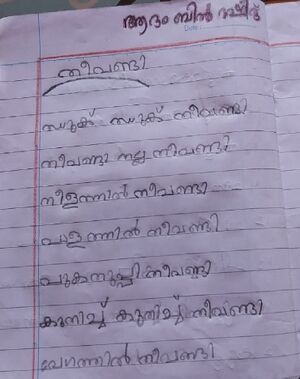 ആദം ബിൻ റഷീദ്
Date:
തീവണ്ടി
തീവണ്ടി
തീവണ്ടി നല്ല തീവണ്ടി
നീളത്തിൽ തീവണ്ടി
പാളത്തിൽ തീവണ്ടി
പുകതുപ്പി തീവണ്ടി
കുതിച്ച് കുതിച്ച് തീവണ്ടി
വേഗത്തിൽ തീവണ്ടി